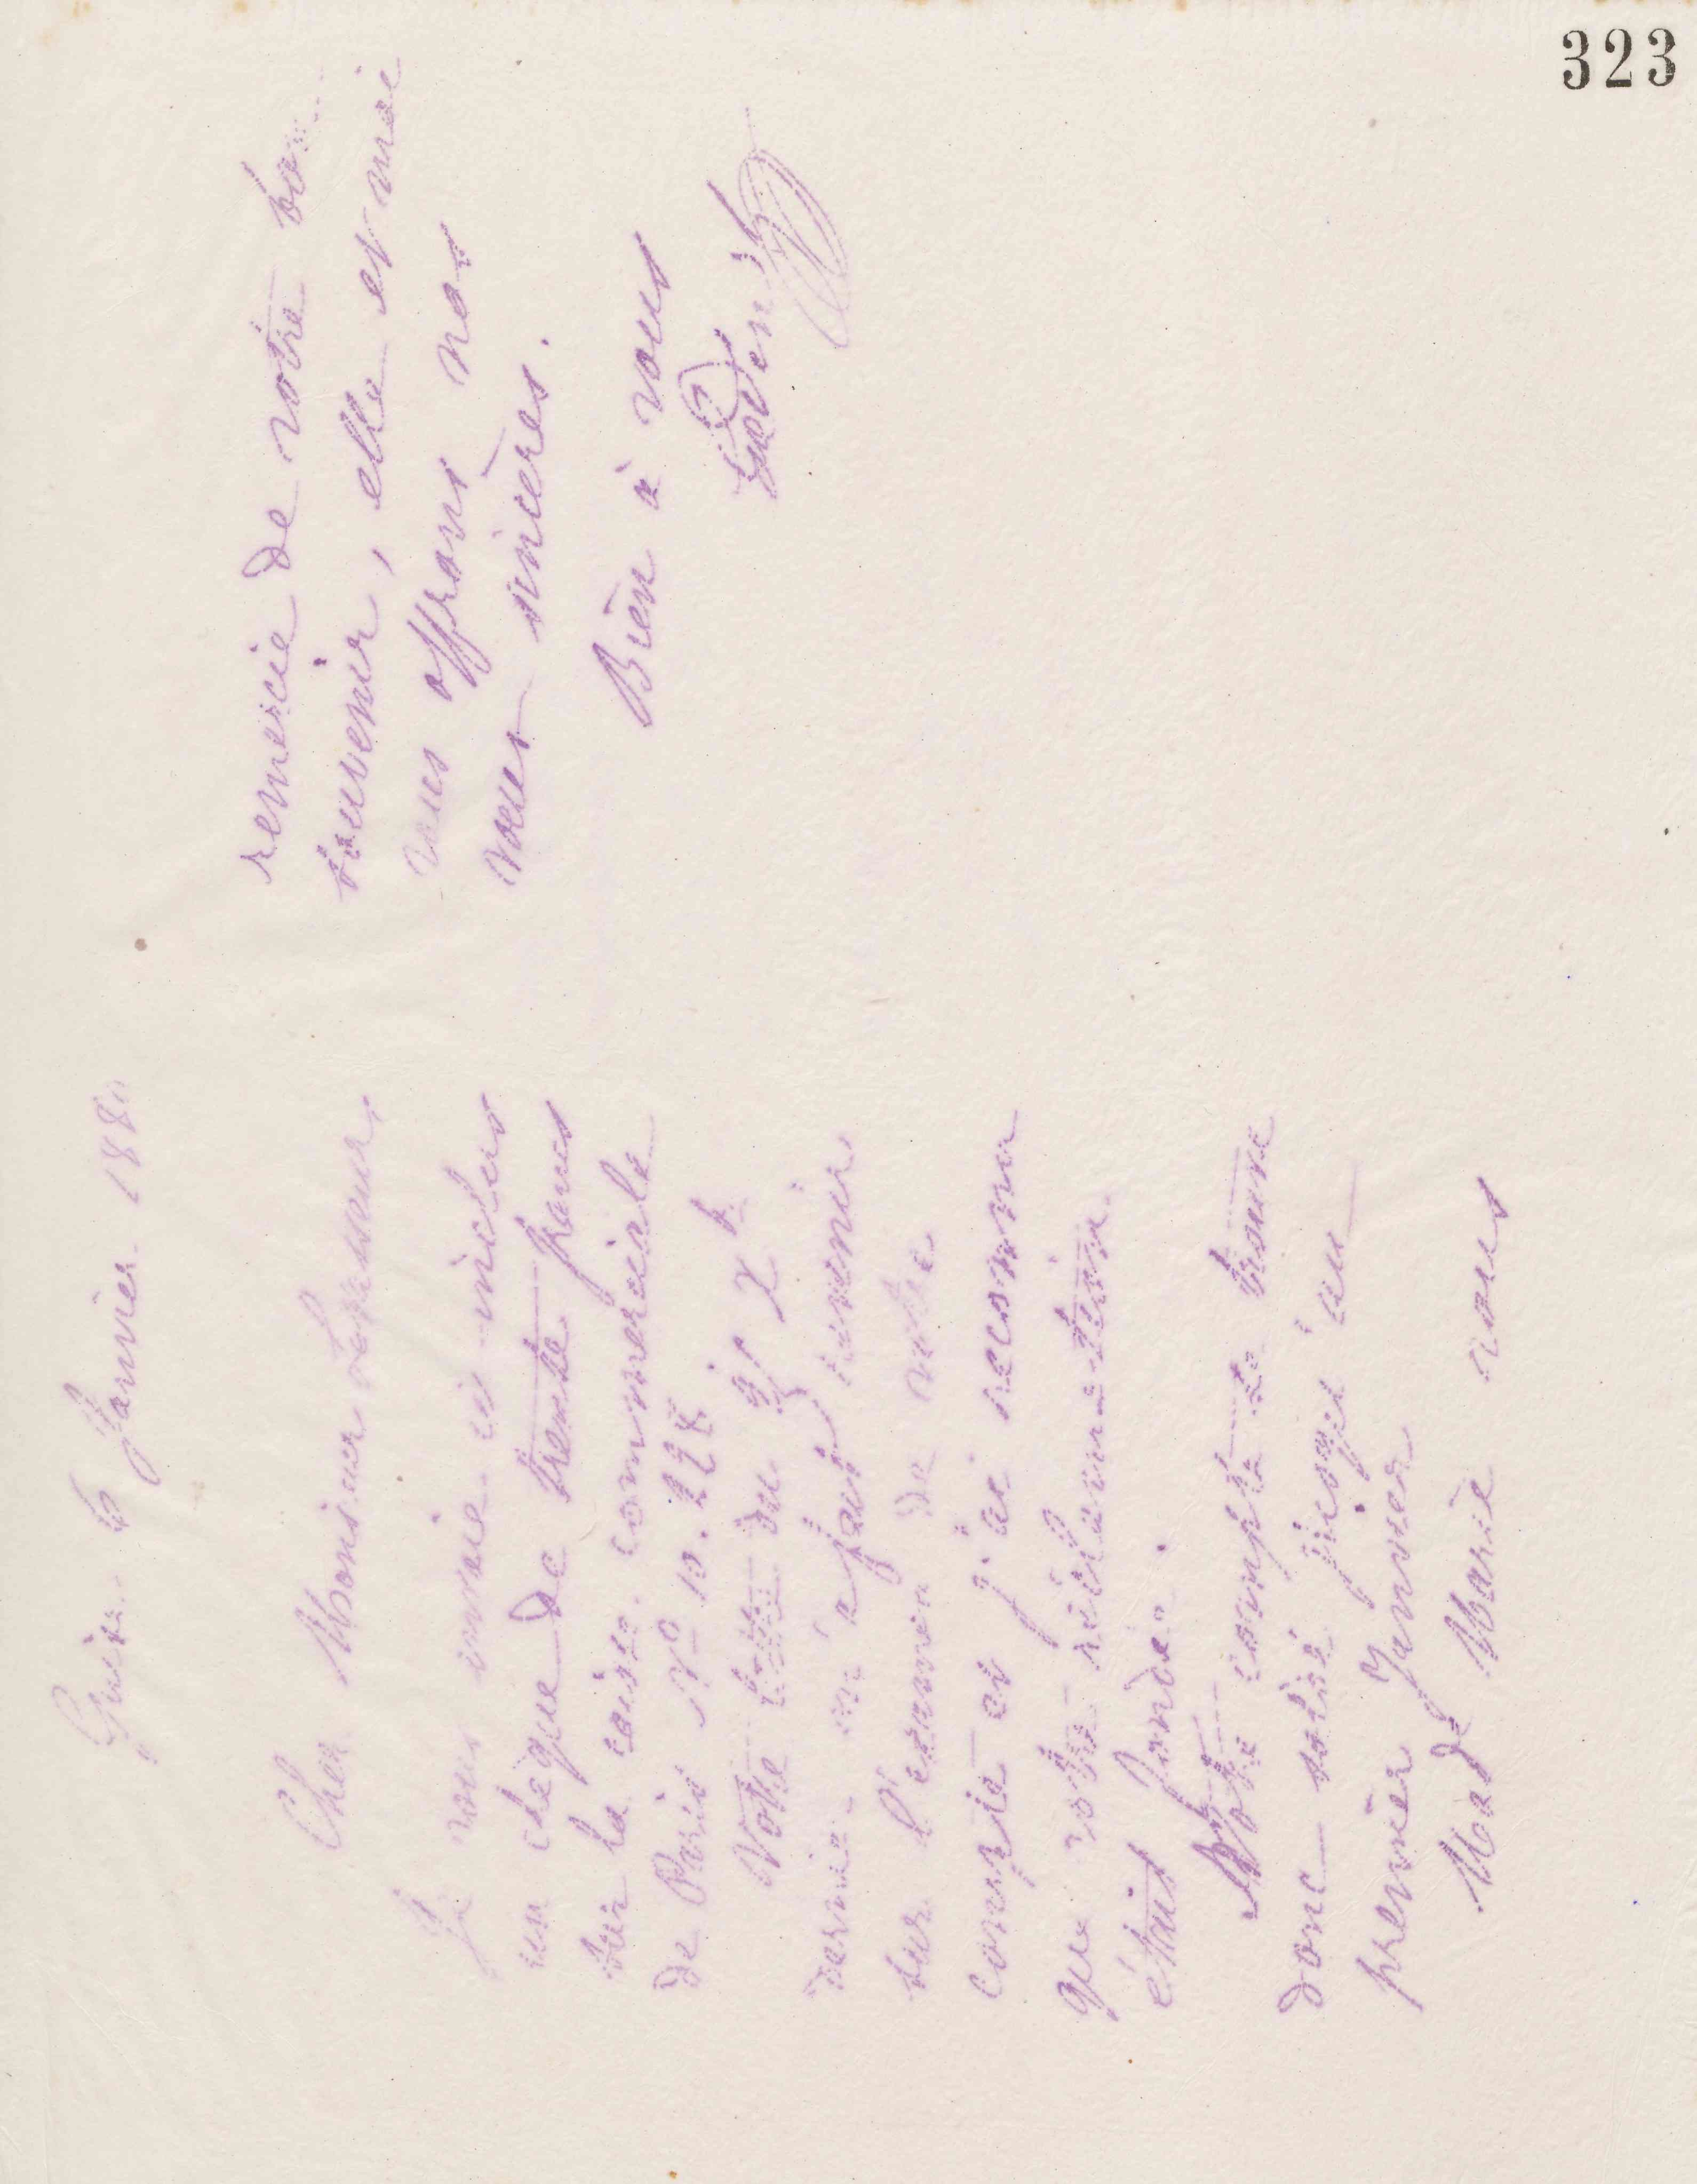 323
Guise 6 Janvier 188
Cher Monsieur
Je vous envoie ci inclus
un chèque de trente francs
sur la caisse commerciale
de Paris Nº 10.228
Votre lettre du 31 Xb
dernier m'a fait revenir
sur l'examen de votre
compte et j'ai reconnu
que votre réclamation
était fondée.
Votre compte se trouve
donc soldé jusqu'au
premier Janvier
Made Marie vous
remercie de votre bon
souvenir, elle et moi
vous offrons nos
voeux sincères.
Bien à vous
Godin